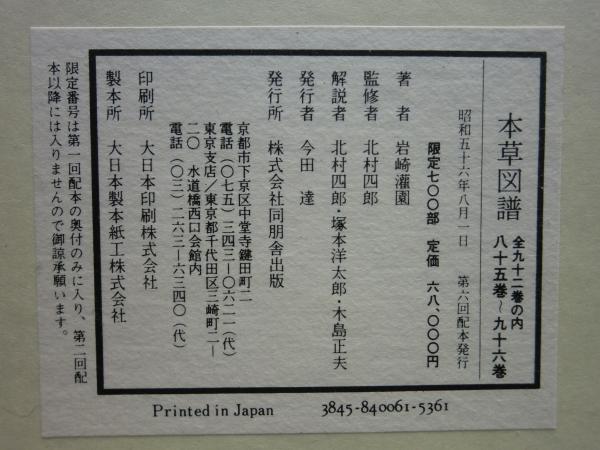 本草図譜
全九十二巻の内
八十五巻〜九十六巻
昭和五十六年八月一日 第六回配本発行
限定七〇〇部 定価 六八、〇〇〇円
著者 岩崎灌園
監修者 北村四郎
解説者 北村四郎・塚本洋太郎・木島正夫
発行者 今田 達
発行所 株式会社同朋舎出版
京都市下京区中堂寺鍵田町二
電話(〇七五)三四三―〇六二一(代)
東京支店/東京都千代田区三崎町二―
二〇 水道橋西口会館内
電話(〇三)二六三―六三四〇(代)
印刷所 大日本印刷株式会社
製本所 大日本製本紙工株式会社
限定番号は第一回配本の奥付のみに入り、第二回配
本以降には入りませんので御諒承願います。
Printed in Japan 3845-840061-5361